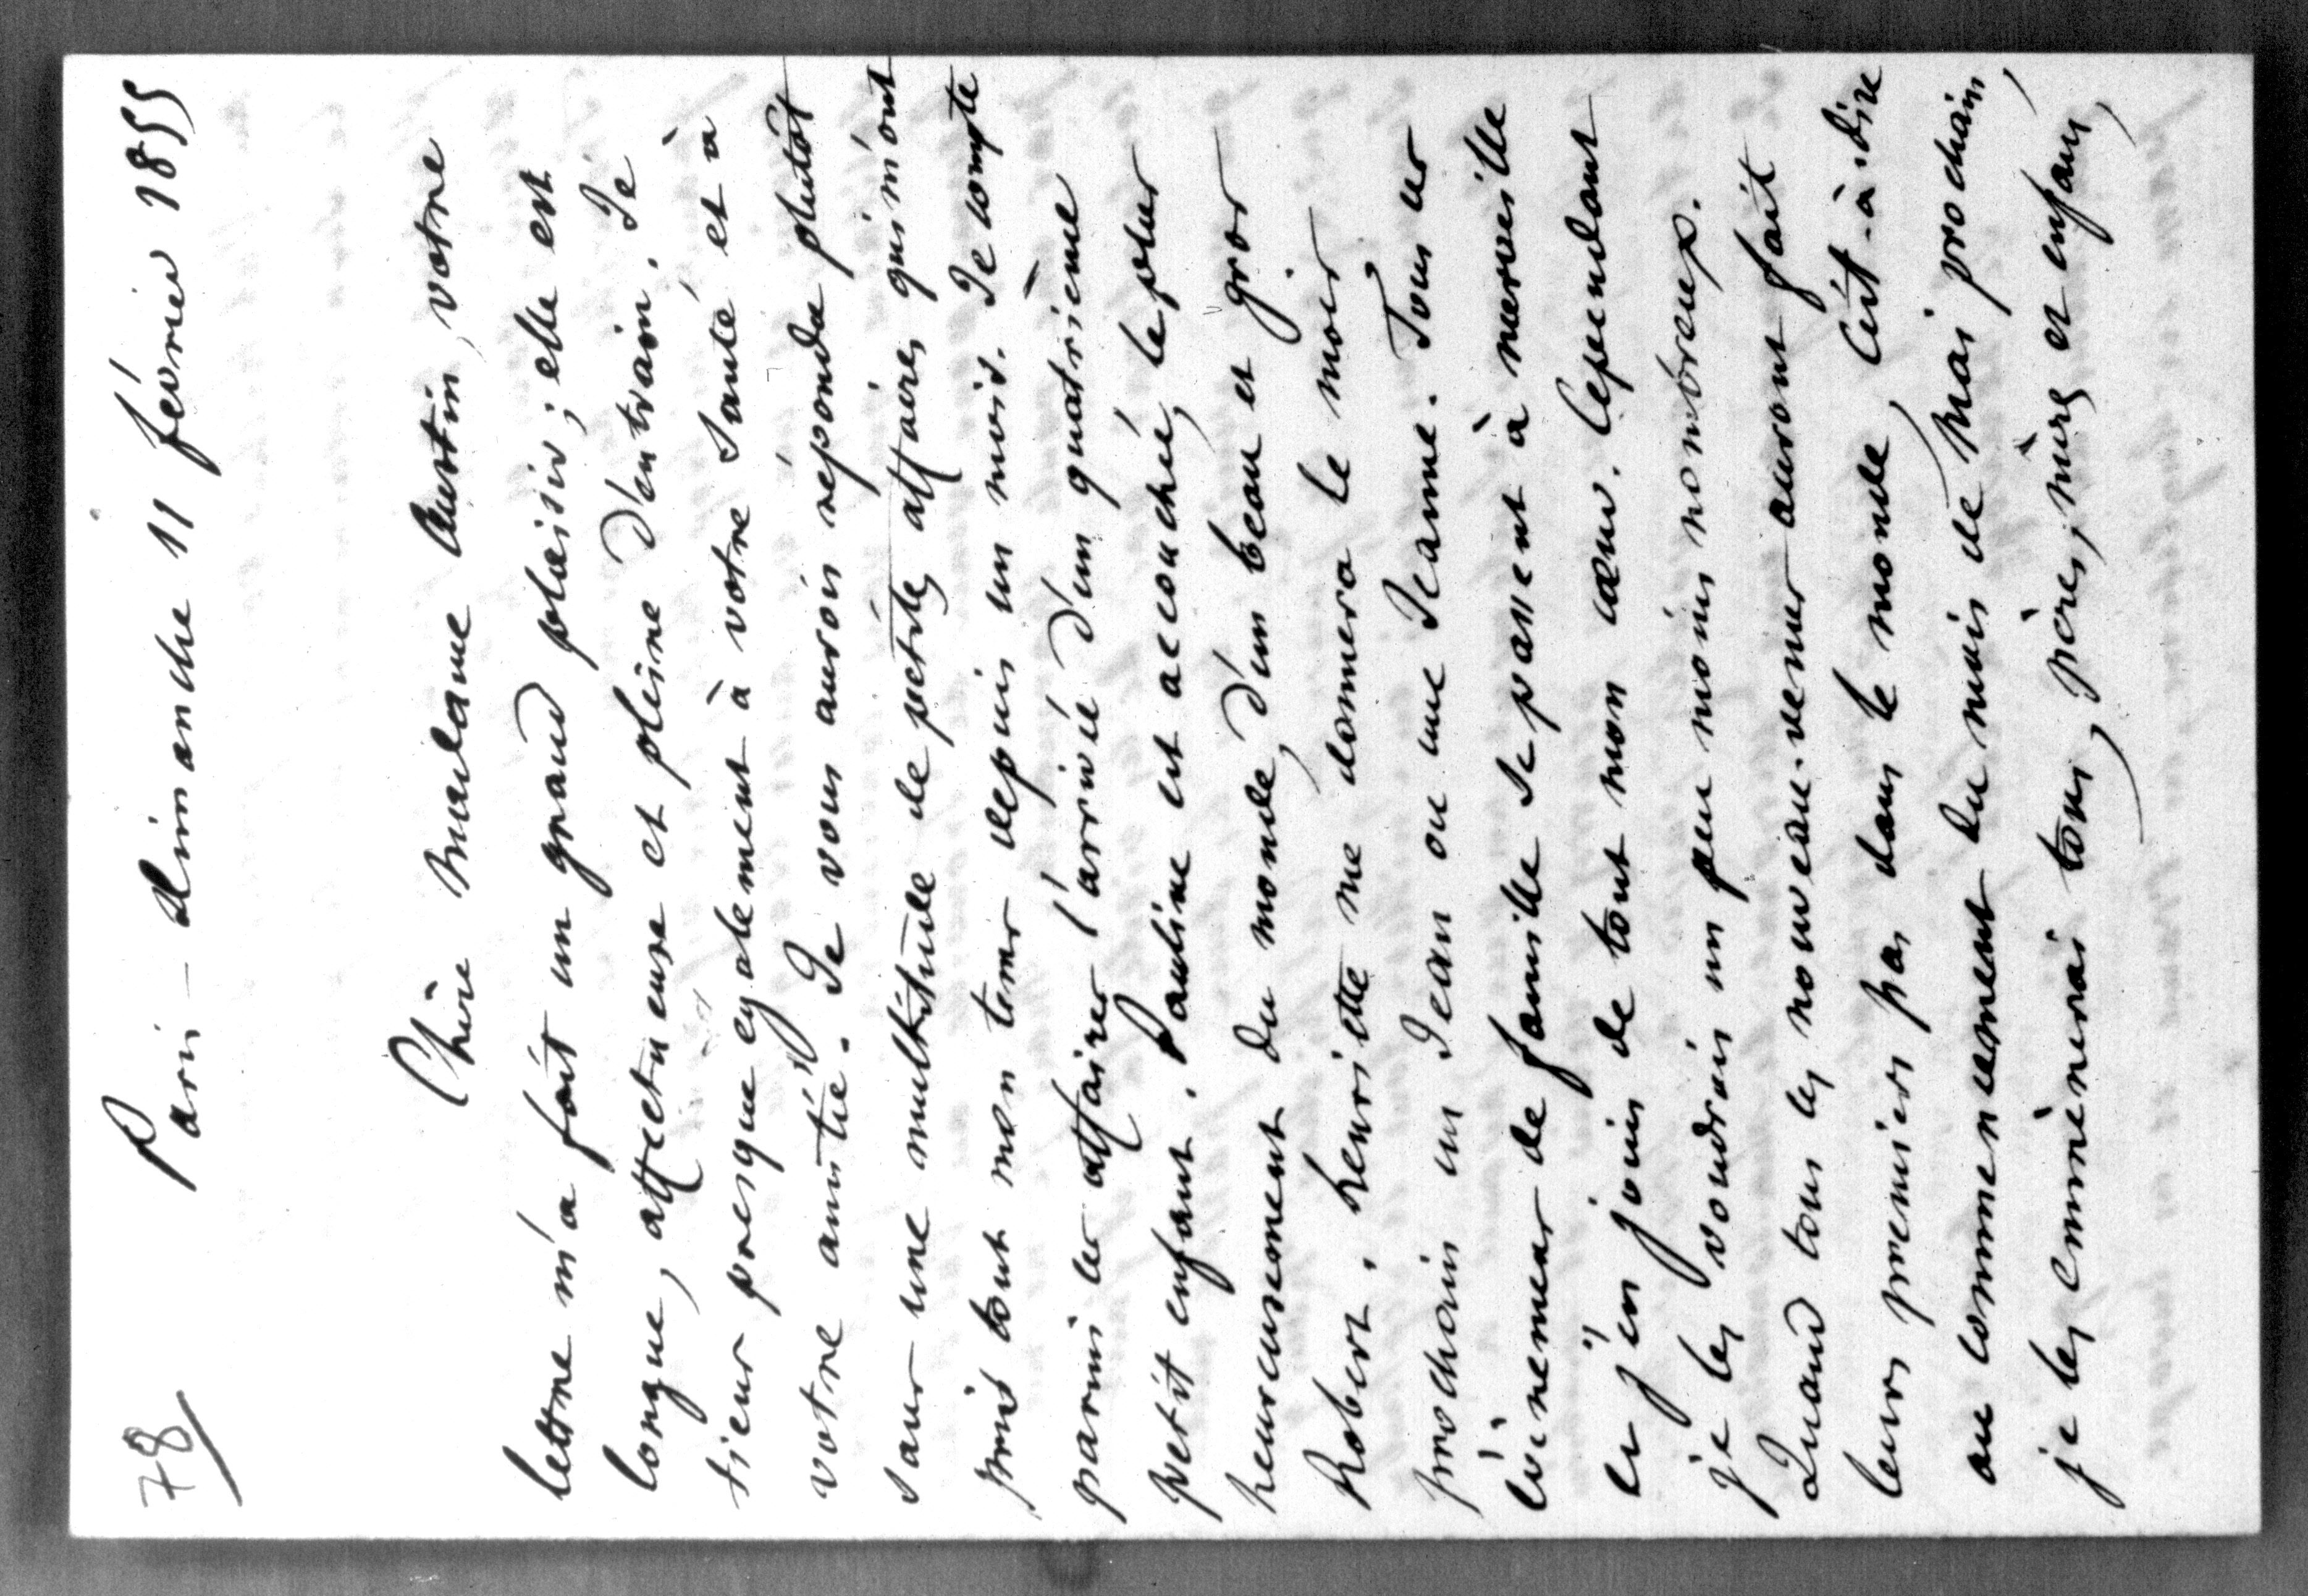 78
Paris – dimanche 11 février 1855
Chère madame Austin, votre
lettre m'a fait un grand plaisir; elle est
longue, affectueuse et pleine d'entrain. Je
tiens presque également à votre santé et à
votre amitié. Je vous aurois répondu plutôt
sans une multitude de petites affaires qui m'ont
pris tout mon tems depuis un mois. Je compte
parmi ces affaires l'arrivée d'un quatrième
petit enfant. Pauline est accouchée, le plus
heureusement du monde, d'un beau et gros
Robert. Henriette me donnera le mois
prochain un Jean ou une Jeanne. Tous ces
évènemens de famille se passent à merveille
et j'en jouis de tout mon cœur. Cependant
je les voudrois un peu moins nombreux.
Quand tous les nouveau-venus auront fait
leurs premiers pas dans le monde, c'est-à-dire
au commencement du mois de Mai prochain,
je les emmènerai tous, pères, mères et enfans,